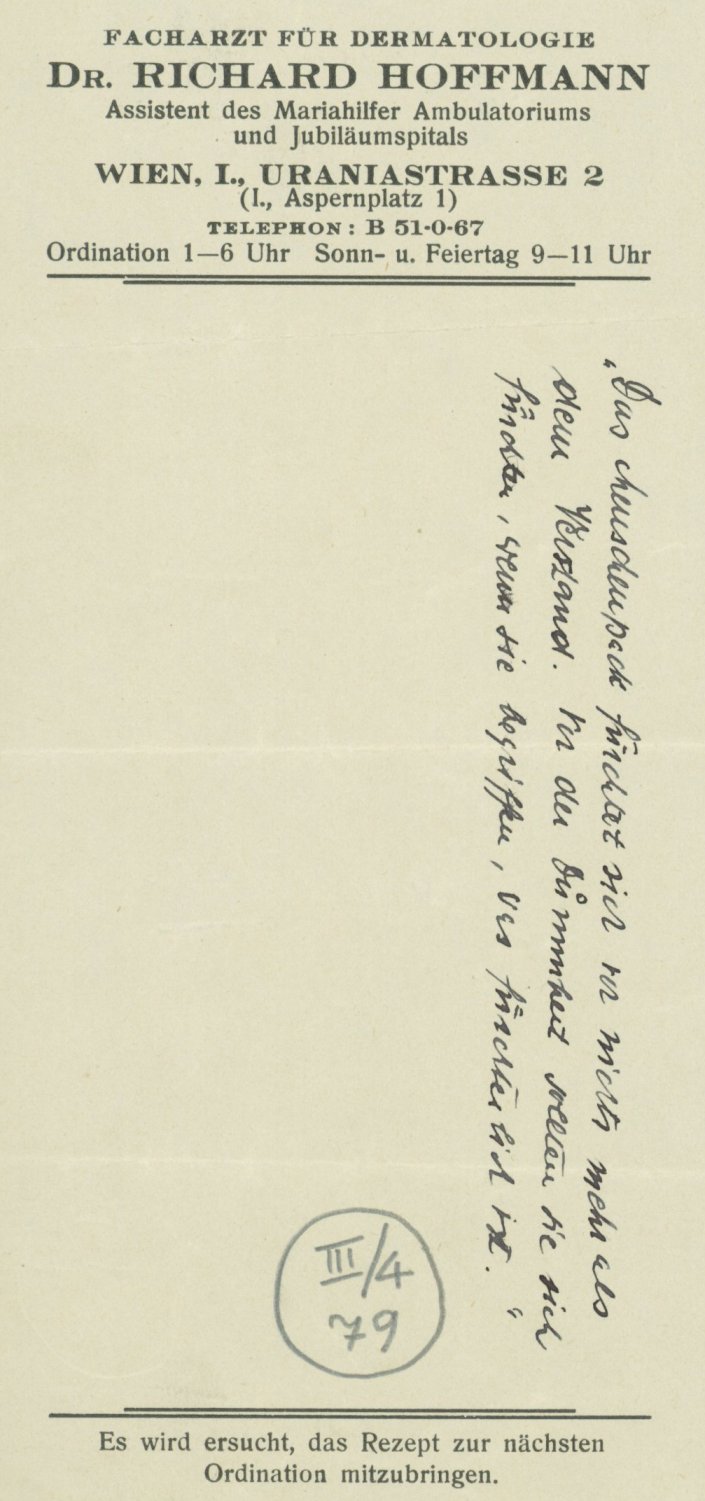 FACHARZT FÜR DERMATOLOGIE
DR. RICHARD HOFFMANN
Assistent des Mariahilfer Ambulatoriums
und Jubiläumspitals
WIEN, I., URANIASTRASSE 2
(I., Aspernplatz 1)
TELEPHON: B 51-0-67
Ordination 1—6 Uhr Sonn- u. Feiertag 9—11 Uhr
„Das Menschenpack fürchtet sich vor nichts mehr als
dem Verstand. Vor der Dummheit sollten sie sich
fürchten, wenn sie begriffen, was fürchterlich ist.“
III/4
79
Es wird ersucht, das Rezept zur nächsten
Ordination mitzubringen.